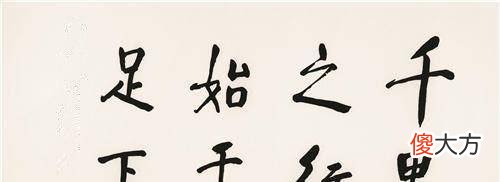 千里
之行
始于
足下
傻大方